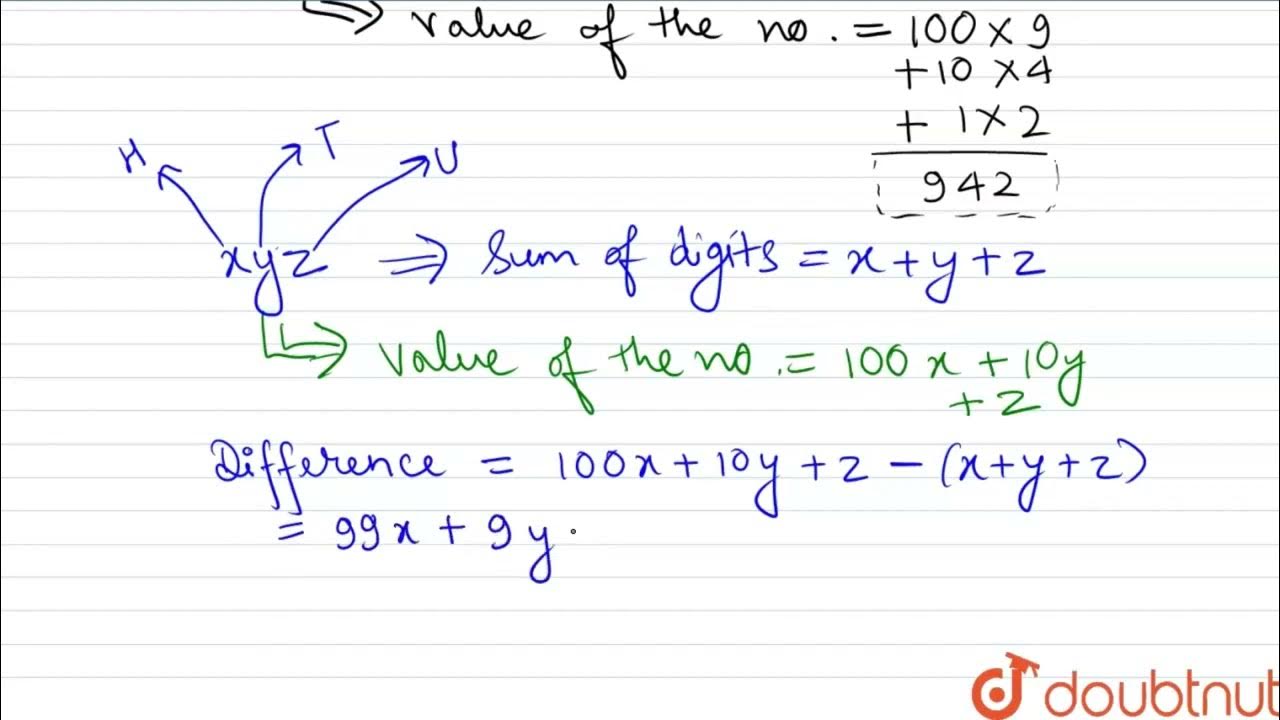 ⇒ value of the no. = 100 × 9
+10 × 4
+ 1 × 2
942
H T U
xyz ⇒ Sum of digits = x+y+z
⇒ value of the no. = 100x + 10y
+ z
Difference = 100x + 10y + z - (x+y+z)
= 99x + 9y.
doubtnut